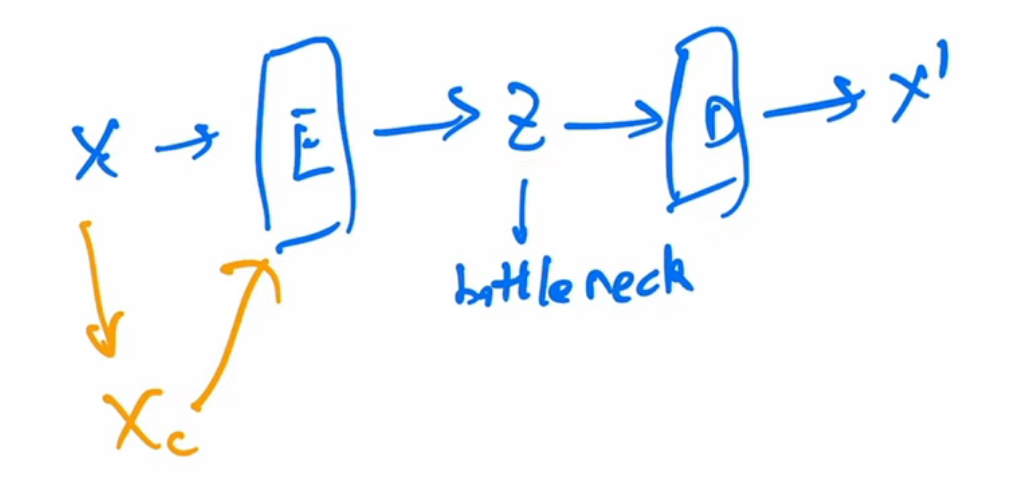 X → E → Z → D → X'
↓
bottleneck
Xc